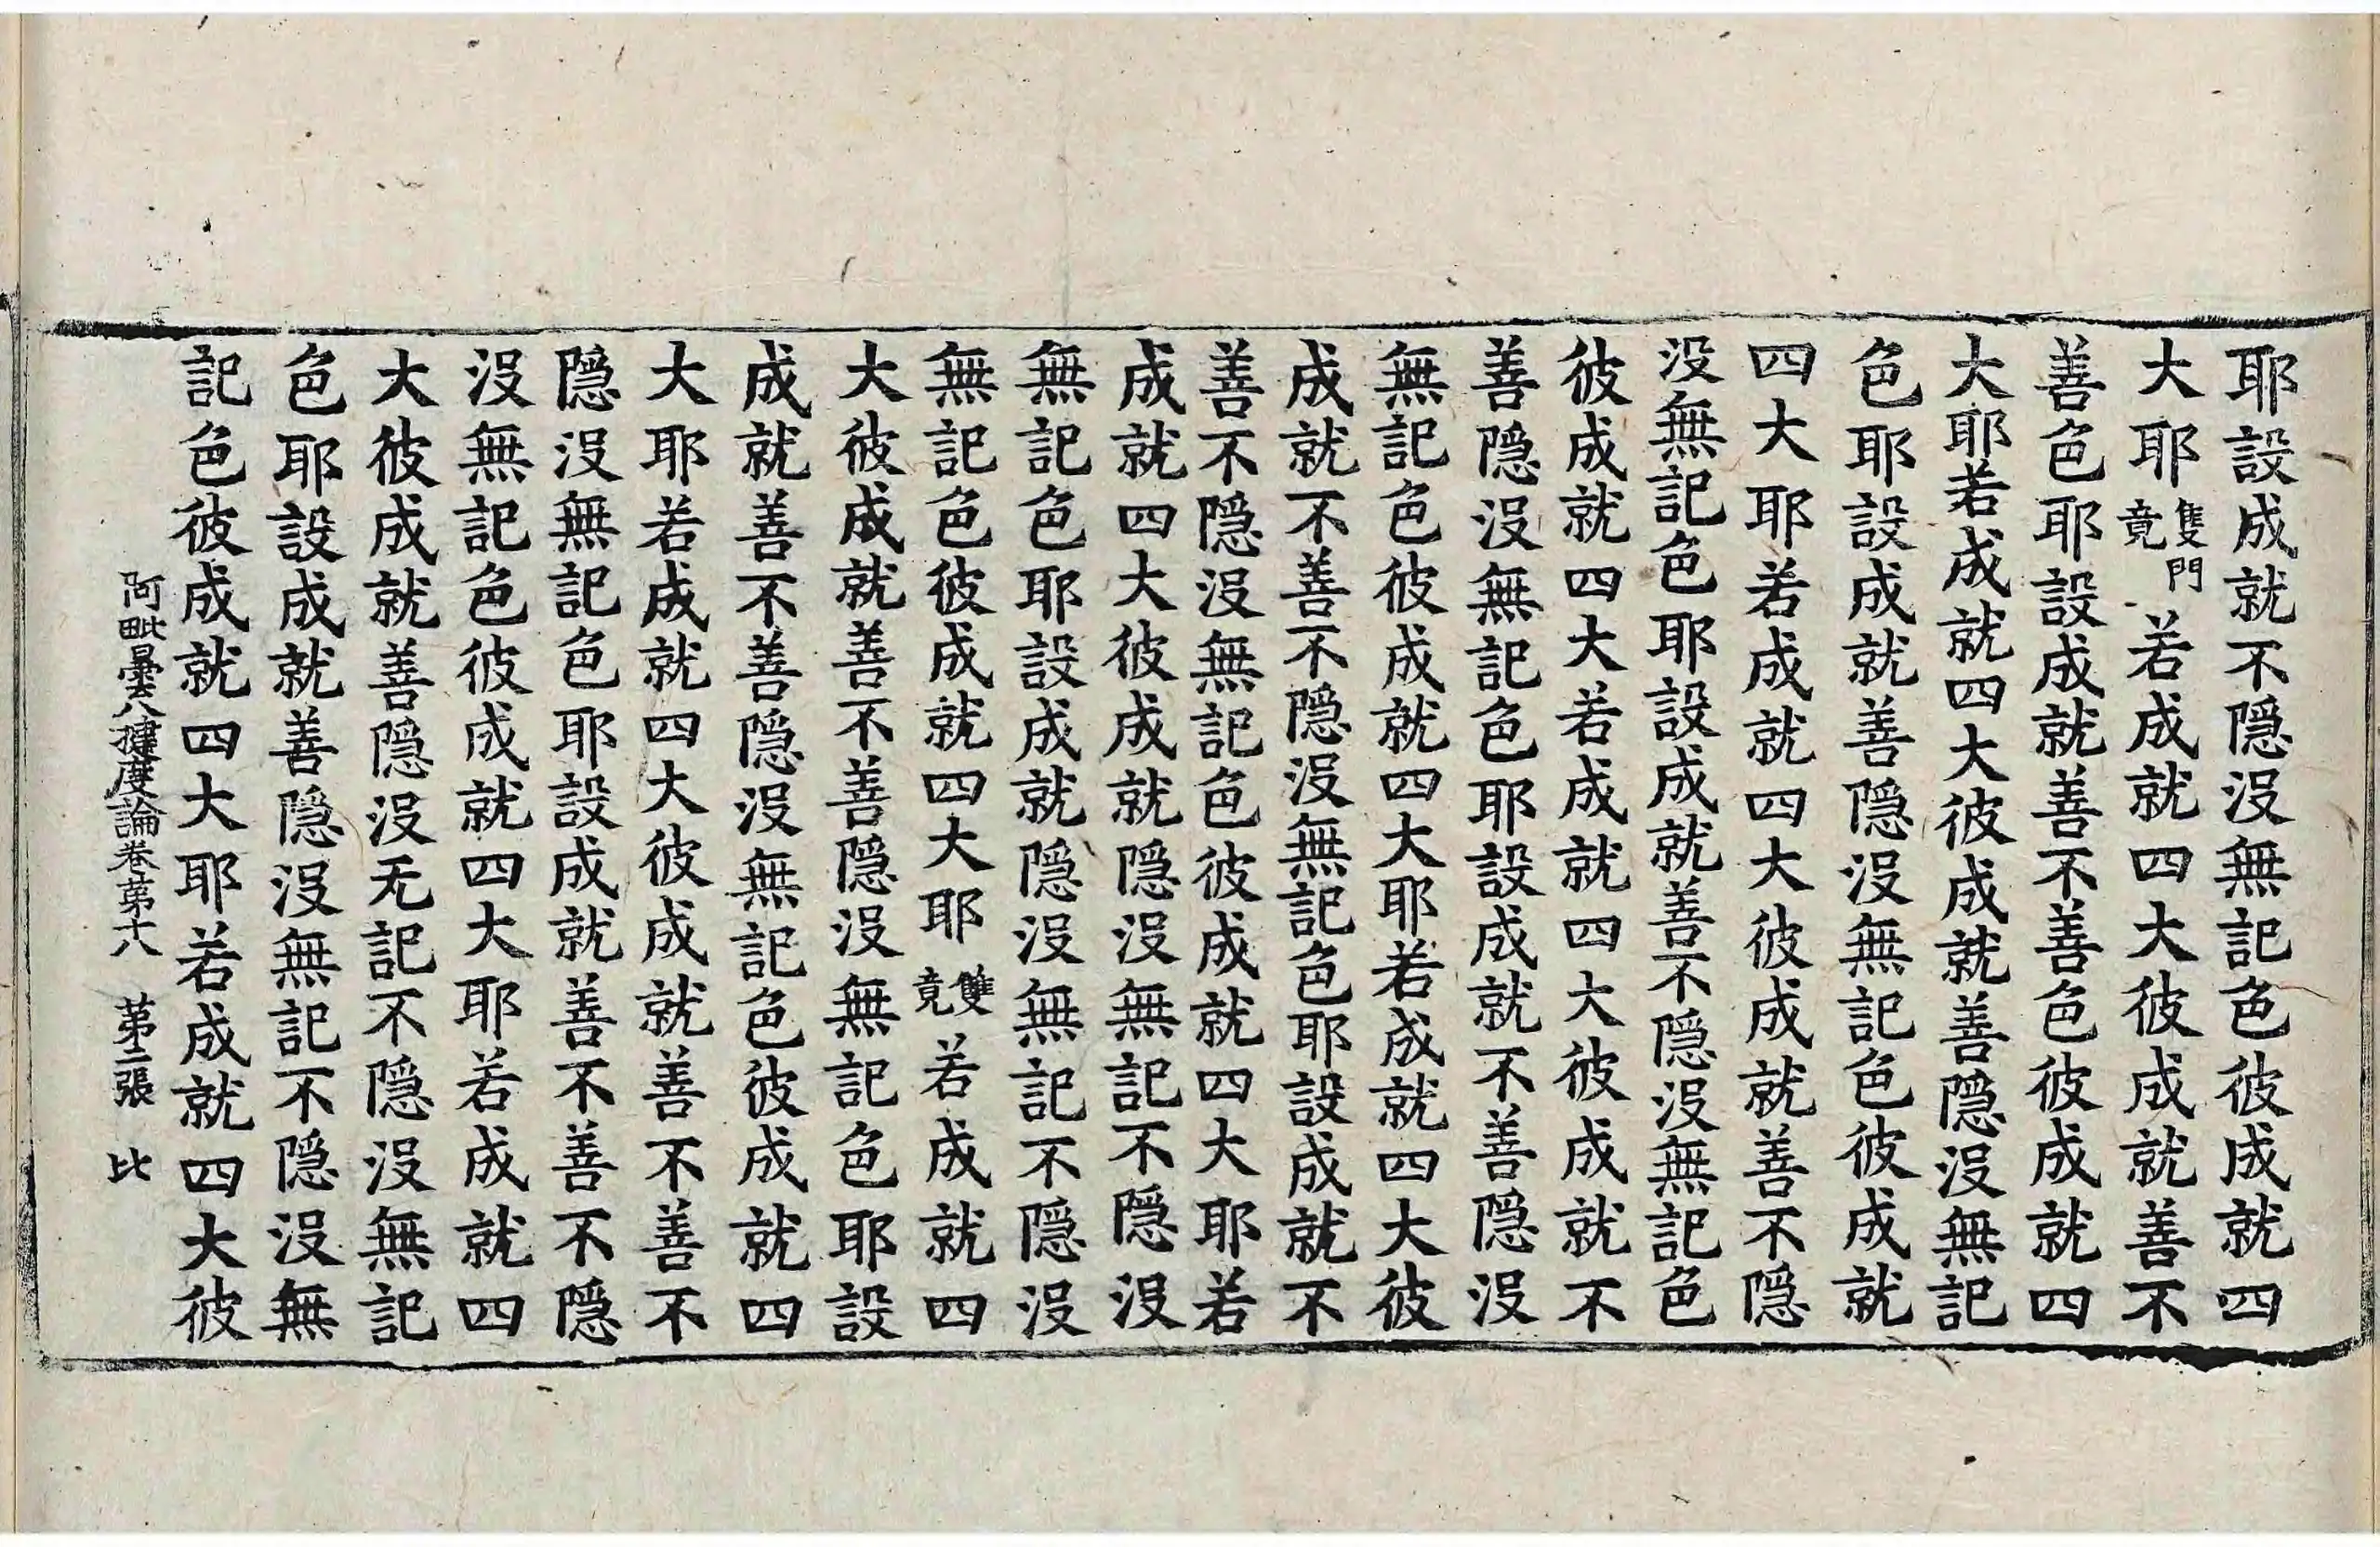 耶設成就不隱沒無記色彼成就四
大耶雙門竟若成就四大彼成就善不
善色耶設成就善不善色彼成就四
大耶若成就四大彼成就善隱沒無記
色耶設成就善隱沒無記色彼成就
四大耶若成就四大彼成就善不隱
沒無記色耶設成就善不隱沒無記色
彼成就四大若成就四大彼成就不
善隱沒無記色耶設成就不善隱沒
無記色彼成就四大耶若成就四大彼
成就不善不隱沒無記色耶設成就不
善不隱沒無記色彼成就四大耶若
成就四大彼成就隱沒無記不隱沒
無記色耶設成就隱沒無記不隱沒
無記色彼成就四大耶雙竟若成就四
大彼成就善不善隱沒無記色耶設
成就善不善隱沒無記色彼成就四
大耶若成就四大彼成就善不善不
隱沒無記色耶設成就善不善不隱
沒無記色彼成就四大耶若成就四
大彼成就善隱沒无記不隱沒無記
色耶設成就善隱沒無記不隱沒無
記色彼成就四大耶若成就四大彼
阿毗曇八揵度論卷第十八 第二張 比